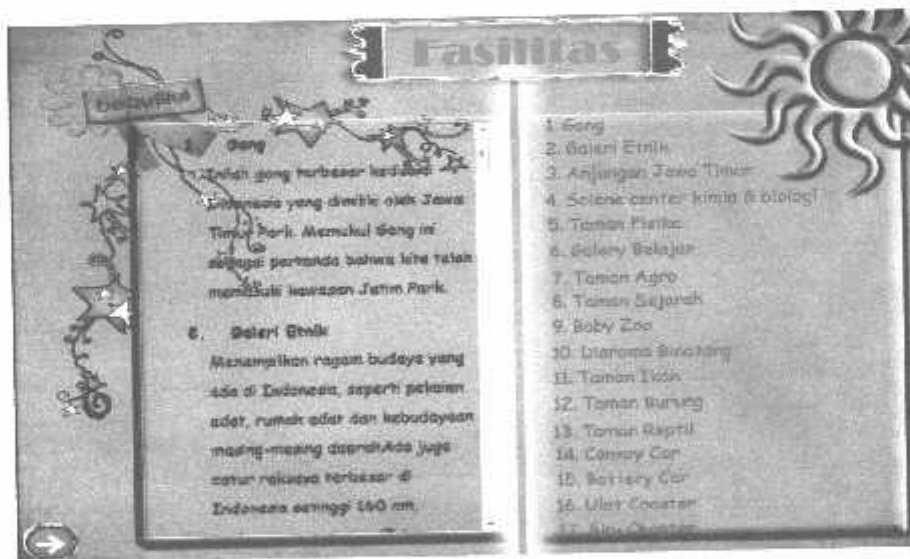 Fasilitas
beautiful
1. Gong
Inilah gong terbesar kedua di
Indonesia yang dimiliki oleh Jawa
Timur Park. Memukul Gong ini
sebagai pertanda bahwa kita telah
memasuki kawasan Jatim Park.
2. Galeri Etnik
Menampilkan ragam budaya yang
ada di Indonesia, seperti pakaian
adat, rumah adat dan kebudayaan
masing-masing daerah.Ada juga
catur raksasa terbesar di
Indonesia setinggi 160 cm,
1. Gong
2. Galeri Etnik
3. Anjungan Jawa Timur
4. Sciene center kimia & biologi
5. Taman Fisika
6. Galery Belajar
7. Taman Agro
8. Taman Sejarah
9. Baby Zoo
10. Diorama Binatang
11. Taman Ikan
12. Taman Burung
13. Taman Reptil
14. Convoy Car
15. Battery Car
16. Ulat Coaster
17. Coaster